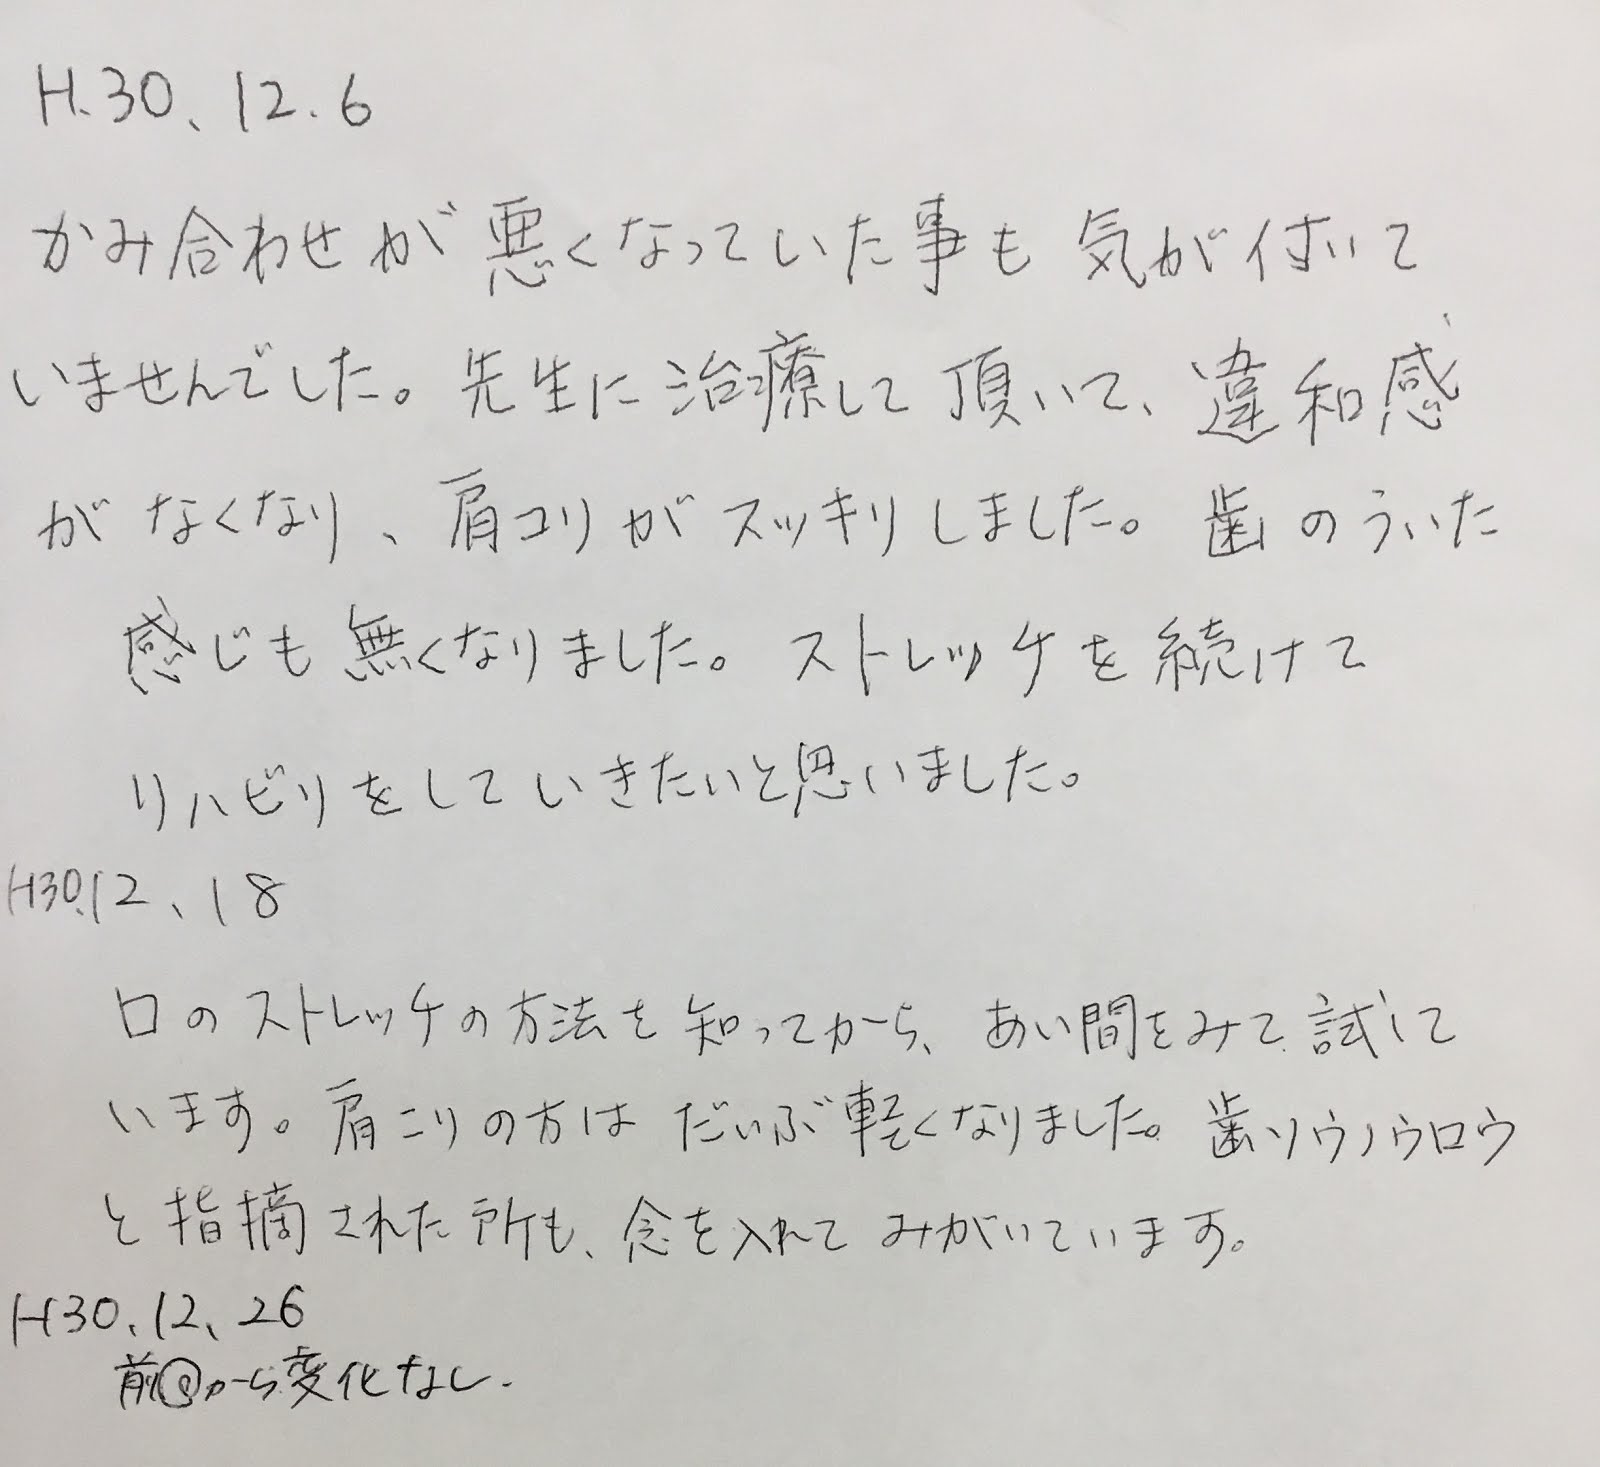 H.30、12.6
かみ合わせが悪くなっていた事も気が付いて
いませんでした。先生に治療して頂いて、違和感
がなくなり、肩コリがスッキリしました。歯のういた
感じも無くなりました。ストレッチを続けて
リハビリをしていきたいと思いました。
H30.12、18
口のストレッチの方法を知ってから、あい間をみて試して
います。肩こりの方はだいぶ軽くなりました。歯ソウノウロウ
と指摘された所も、念を入れてみがいています。
H30、12、26
前回から変化なし.